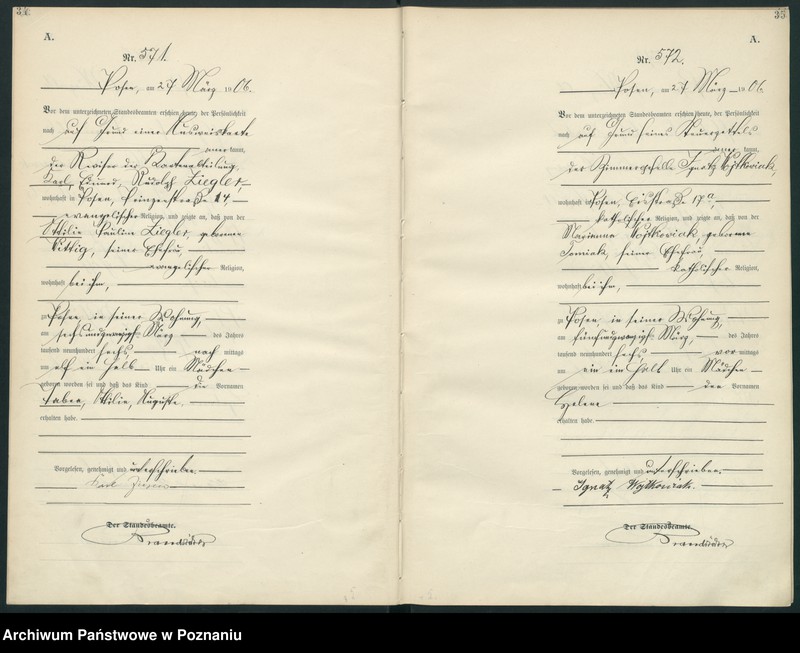 34
A.
Nr. 571.
Posen, am 27 März 1906.
Vor dem unterzeichneten Standesbeamten erschien heute, der Persönlichkeit
nach auf Grund einer Ausweiskarte
kannt,
der Revisor der
Karl, Eduard, Rudolf Ziegler
wohnhaft in Posen, 14,
evangelischer Religion, und zeigte an, daß von der
Ottilie Pauline Ziegler, geborene
Wittig, seiner Ehefrau,
evangelischer Religion,
wohnhaft bei ihm,
zu Posen, in seiner Wohnung,
am sechsundzwanzigsten März des Jahres
tausend neunhundert sechs, nach mittags
um elf ein halb Uhr ein Mädchen
geboren worden sei und daß das Kind die Vornamen
Ottilie, Auguste
erhalten habe.
Vorgelesen, genehmigt und unterschrieben.
Karl Ziegler
Der Standesbeamte.
35
A.
Nr. 572.
Posen, am 27 März 1906.
Vor dem unterzeichneten Standesbeamten erschien heute, der Persönlichkeit
nach auf Grund seines Steuerzettels
kannt,
der Zimmergeselle Ignatz Wojtkowiak,
wohnhaft in Posen, 17a,
katholischer Religion, und zeigte an, daß von der
Marianna Wojtkowiak, geborene
Tomiak, seiner Ehefrau,
katholischer Religion,
wohnhaft bei ihm,
zu Posen, in seiner Wohnung,
am fünfundzwanzigsten März, des Jahres
tausend neunhundert sechs, vor mittags
um ein ein halb Uhr ein Mädchen
geboren worden sei und daß das Kind den Vornamen
Helene
erhalten habe.
Vorgelesen, genehmigt und unterschrieben.
Ignatz Wojtkowiak.
Der Standesbeamte.
Archiwum Państwowe w Poznaniu